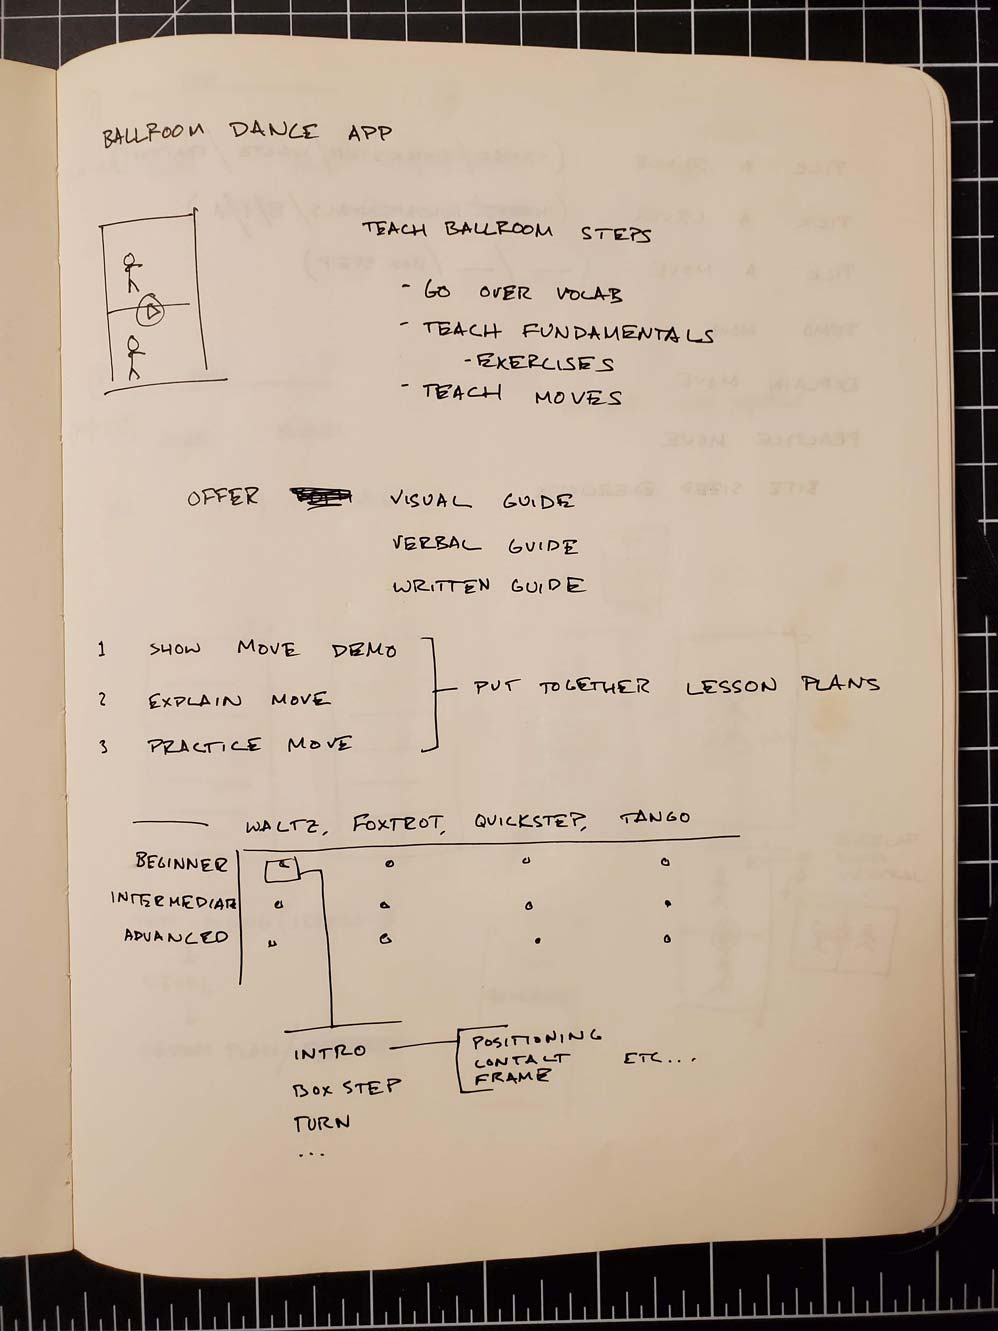 BALLROOM DANCE APP
TEACH BALLROOM STEPS
- GO OVER VOCAB
- TEACH FUNDAMENTALS
- EXERCISES
- TEACH MOVES
OFFER VISUAL GUIDE
VERBAL GUIDE
WRITTEN GUIDE
1 SHOW MOVE DEMO
2 EXPLAIN MOVE
3 PRACTICE MOVE
PUT TOGETHER LESSON PLANS
WALTZ, FOXTROT, QUICKSTEP, TANGO
BEGINNER
INTERMEDIATE
ADVANCED
INTRO
BOX STEP
TURN
...
POSITIONING
CONTACT
FRAME
ETC...